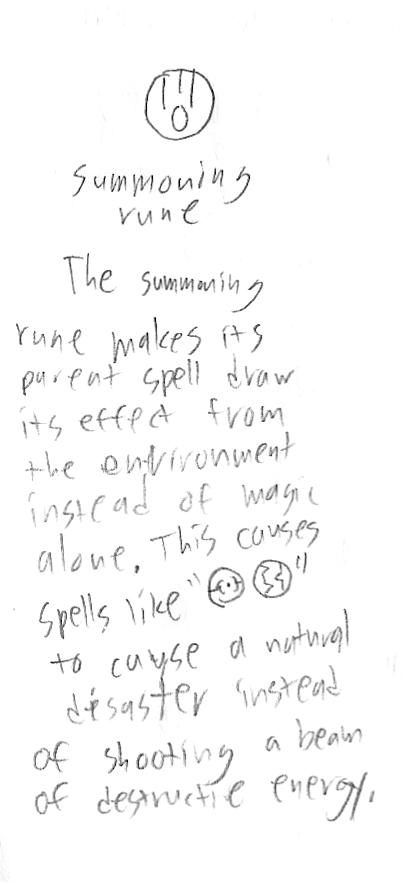 summoning
rune
The summoning
rune makes its
parent spell draw
its effect from
the environment
instead of magic
alone. This causes
spells like " "
to cause a natural
disaster instead
of shooting a beam
of destructie energy.